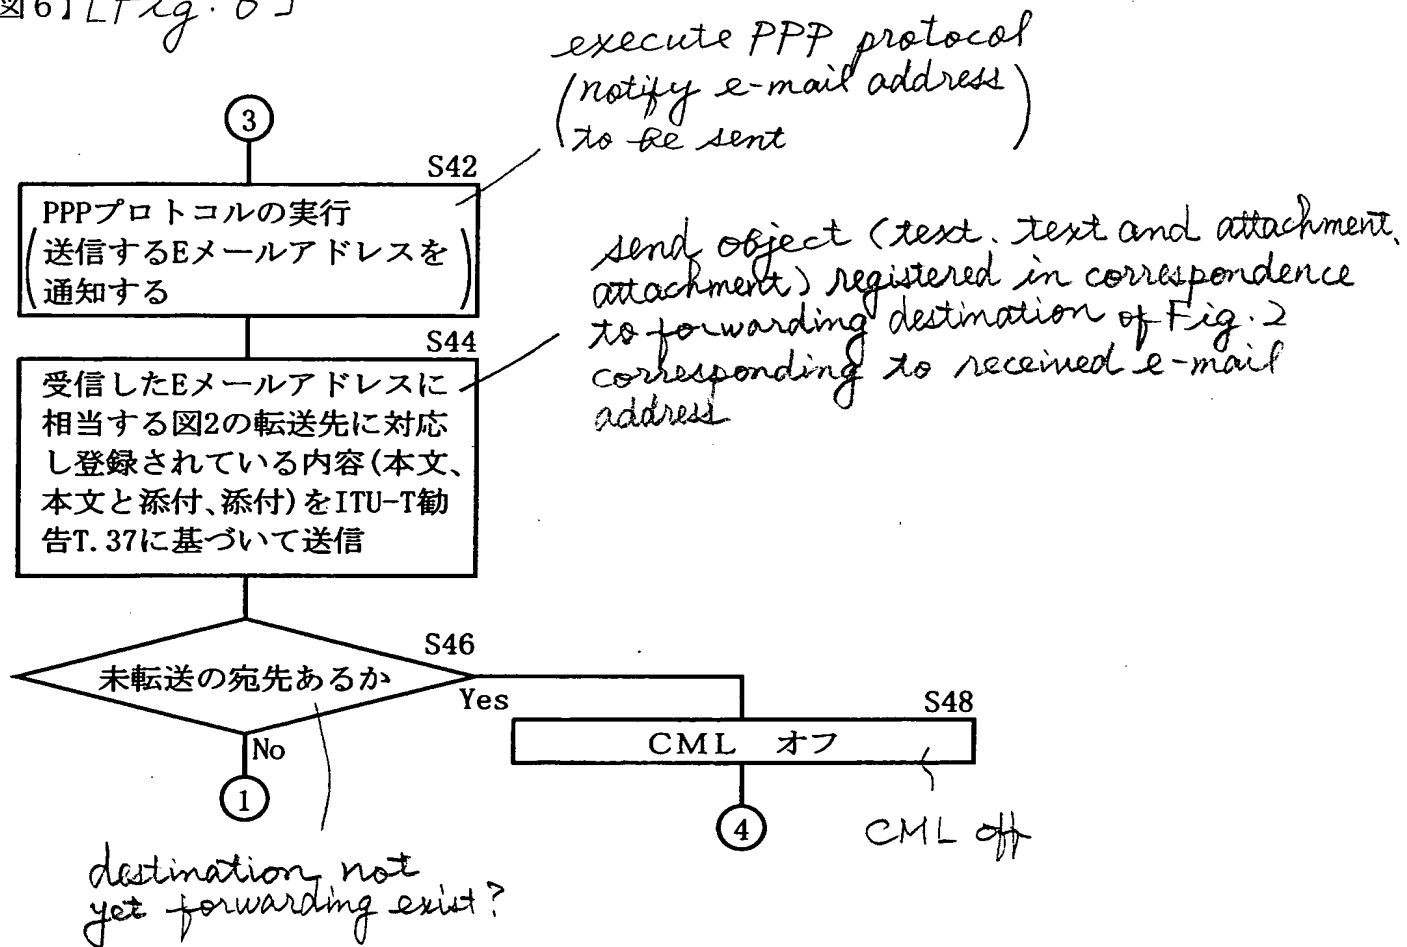 図6】[Fig. 6]
execute PPP protocol
(notify e-mail address
to be sent)
3
S42
PPPプロトコルの実行
(送信するEメールアドレスを
通知する)
send object (text. text and attachment.
attachment) registered in correspondence
to forwarding destination of Fig. 2
corresponding to received e-mail
address
S44
受信したEメールアドレスに
相当する図2の転送先に対応
し登録されている内容(本文、
本文と添付、添付)をITU-T勧
告T.37に基づいて送信
S46
未転送の宛先あるか
Yes
No
1
S48
CML オフ
4
CML off
destination not
yet forwarding exist?